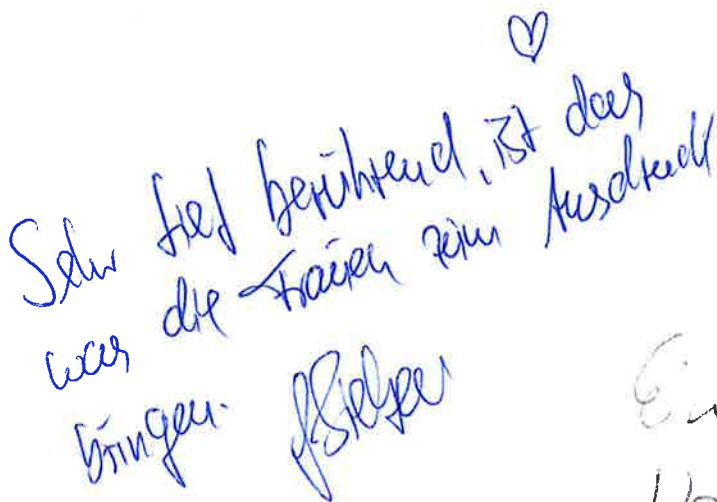 Sehr tief berührend, ist das
was die Frauen zum Ausdruck
bringen.